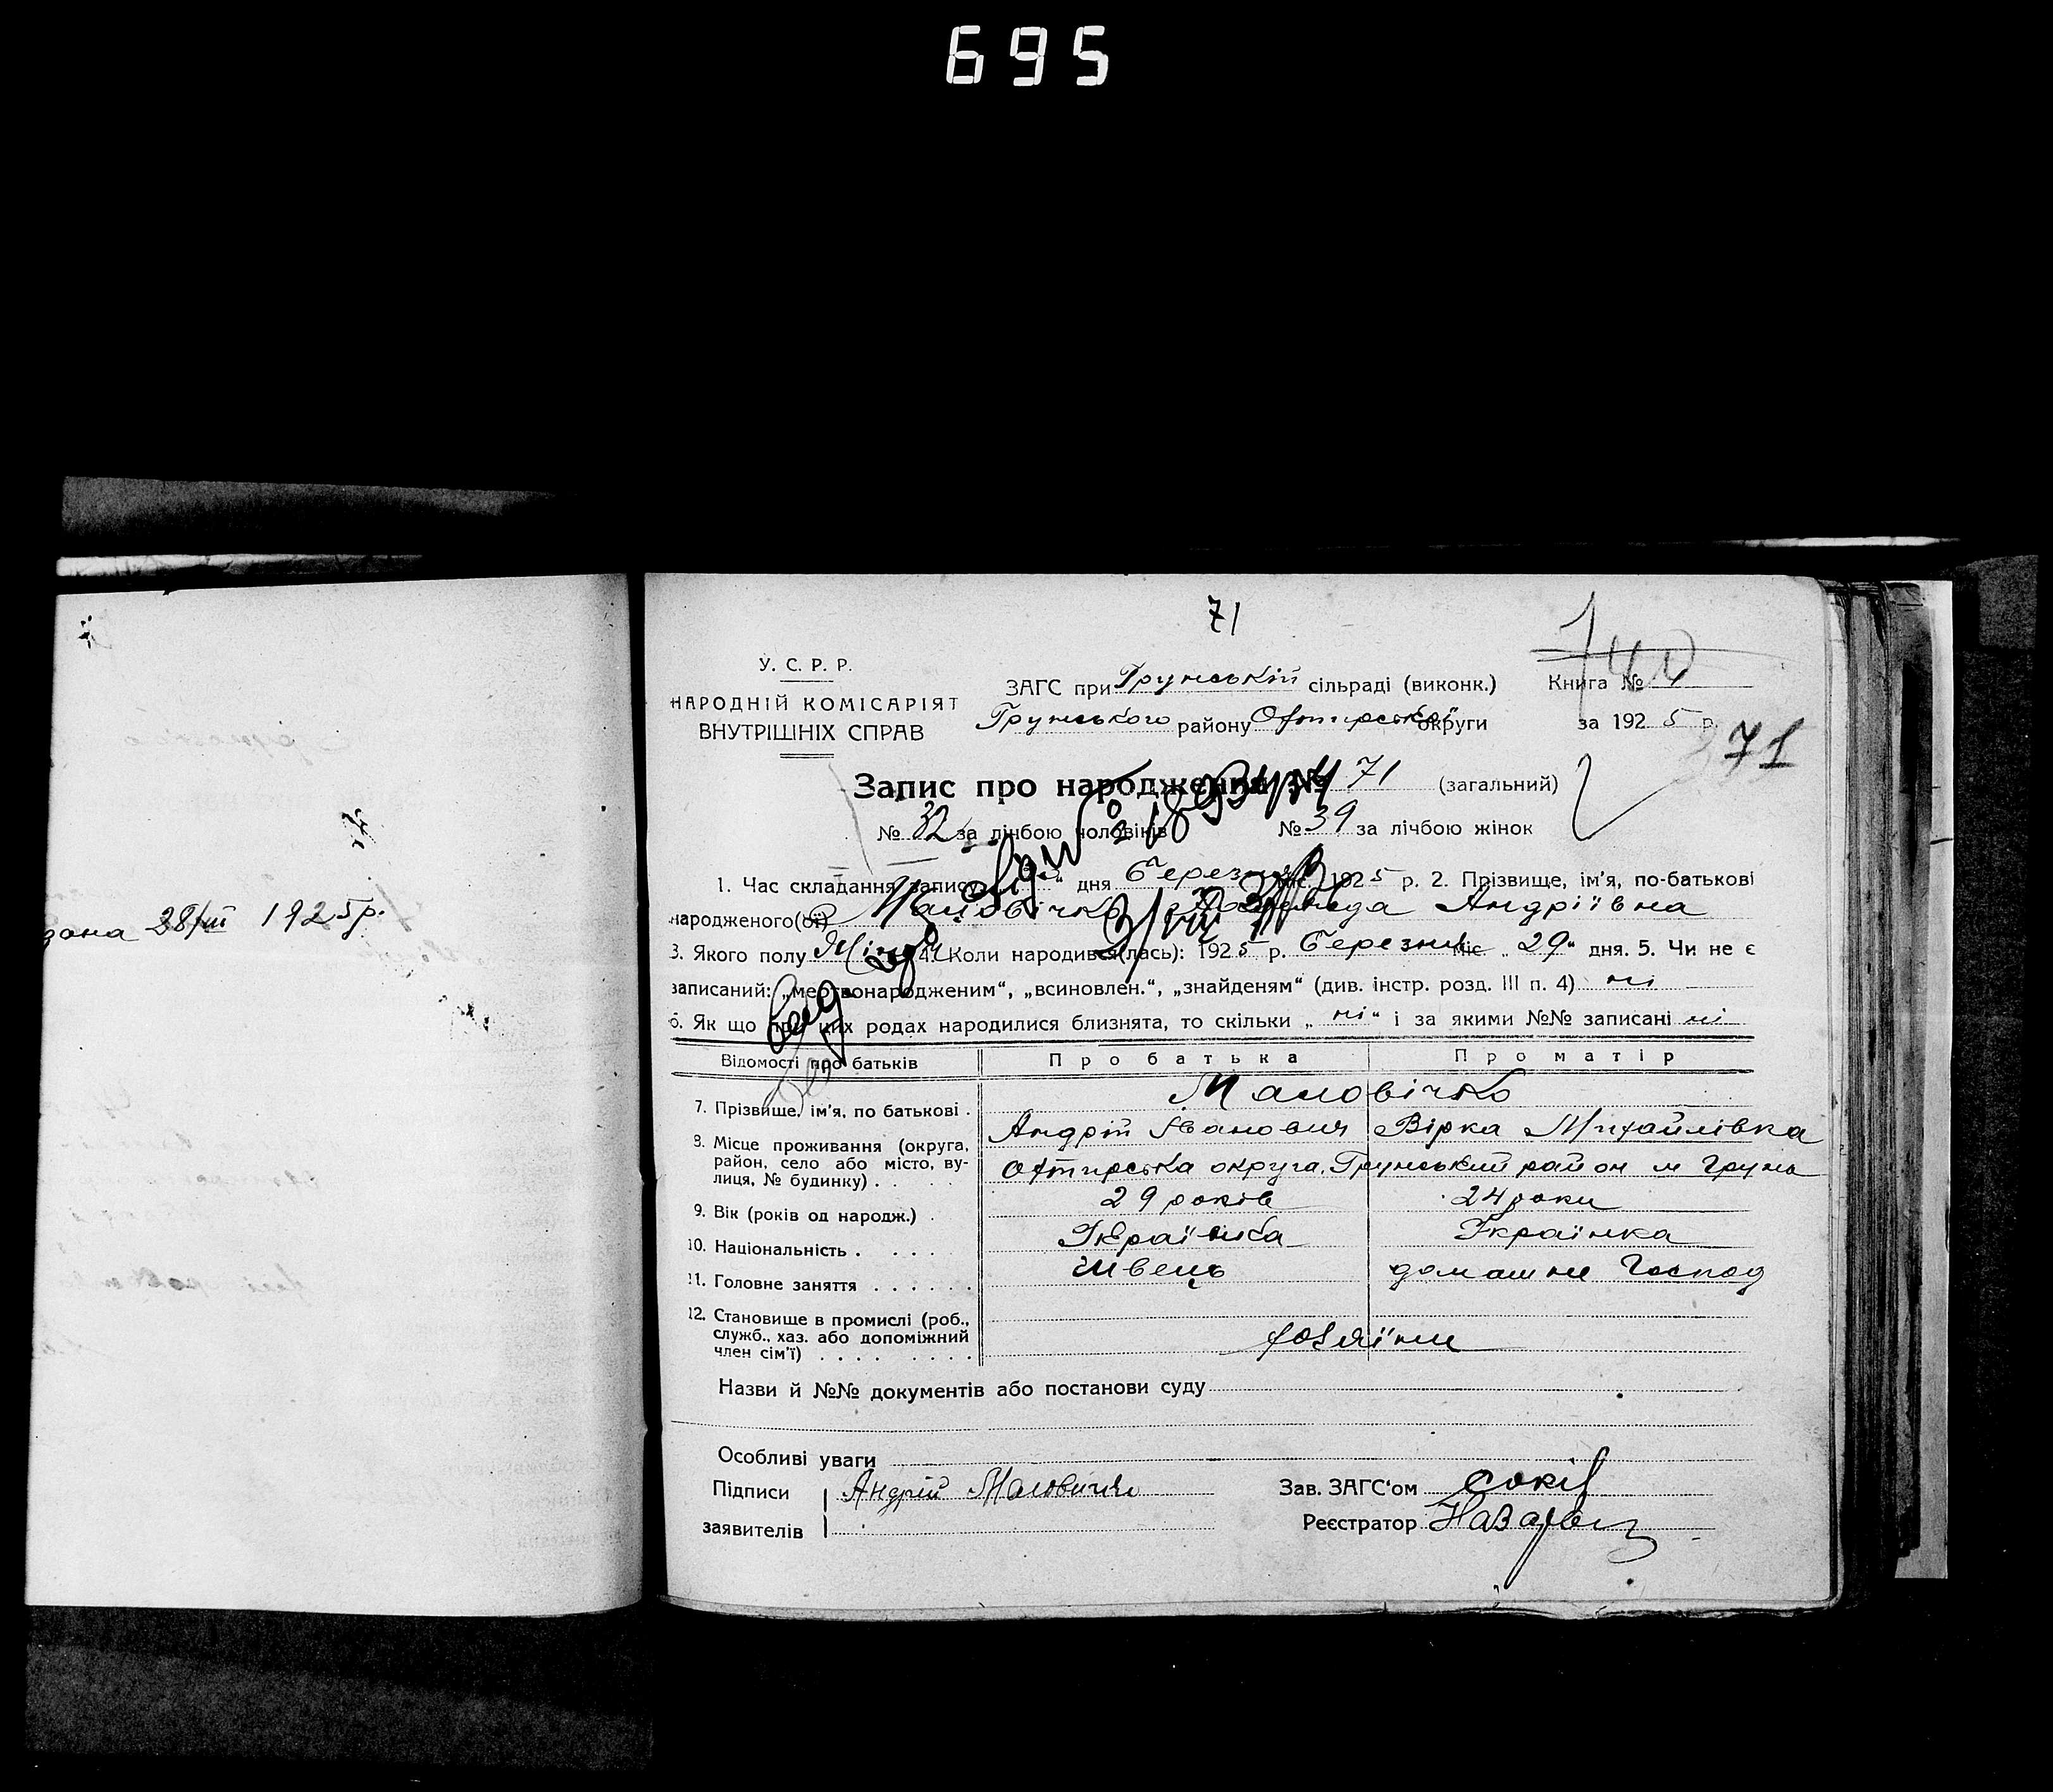 695
71
У. С. Р. Р.
НАРОДНІЙ КОМІСАРІЯТ
ВНУТРІШНІХ СПРАВ
ЗАГС при Грунській сільраді (виконк.)
Грунського району Охтирської округи
Книга №
за 1925 р.
71
Запис про народження № 71 (загальний)
№ 32 за лічбою чоловіків № 39 за лічбою жінок
1. Час складання запису " дня Березня міс. 1925 р. 2. Прізвище, ім'я, по-батькові
народженого(ої) Маловічко Андріївна
3. Якого полу Жіноч. 4. Коли народився(лась): 1925 р. Березня міс. „29" дня. 5. Чи не є
записаний: „мертвонародженим", „всиновлен.", „знайденям" (див. інстр. розд. III п. 4) ні
6. Як що при цих родах народилися близнята, то скільки „ні" і за якими №№ записані ні
дана 28/III 1925р.
Відомості про батьків Про батька Про матір
7. Прізвище, ім'я, по батькові . Маловічко
Андрій Іванович Вірка Михайлівка
8. Місце проживання (округа, район, село або місто, вулиця, № будинку) . Охтирська округа. Грунський район м Грунь
9. Вік (років од народж.) . 29 років 24 роки
10. Національність . . . . Українка
11. Головне заняття . . . . . . Швець домашнє Господ
12. Становище в промислі (роб., служб., хаз. або допоміжний член сім'ї) . . . . . . . . хозяїни
Назви й №№ документів або постанови суду
Особливі уваги
Підписи Андрій Маловичко
заявителів
Зав. ЗАГС'ом
Реєстратор